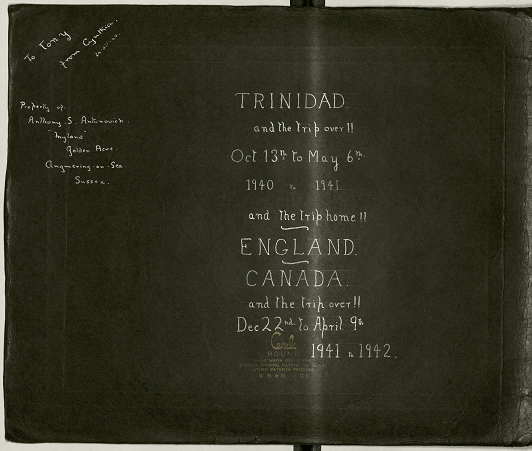 To Tony
from Cynthia.
Property of:
Anthony. S. Antonovich.
"Inyland"
Golden Acre.
Angmering-on-Sea.
Sussex.
TRINIDAD.
and the trip over!!
Oct 13th to May 6th
1940 to 1941.
and the trip home!!
ENGLAND.
CANADA.
and the trip over!!
Dec 22nd to April 9th
1941 to 1942.
BOUND